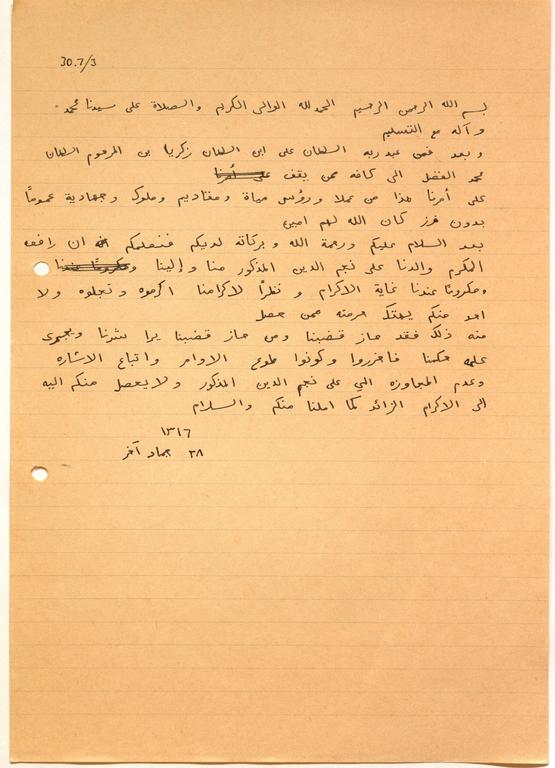 30.7/3
بسم الله الرحمن الرحيم الحمد لله الوالى الكريم والصلاة على سيدنا محمد
وآله مع التسليم
وبعد فمن عبد ربه السلطان على ابن السلطان زكريا بن المرحوم السلطان
محمد الفضل الى كافه من يقف على أمرنا
على أمرنا هذا من عملا ورؤس مياة ومقاديم وملوك وجهادية عموماً
بدون فرز كان الله لهم امين
بعد السلام عليكم ورحمة الله وبركاته لديكم فنعلمكم ان رافعه
المكرم والدنا على نجم الدين المذكور منا وإلينا
ومكروماً عندنا غاية الاكرام ونظراً لاكرامنا اكرموه وتجلوه ولا
احد منكم يهتك حرمته فمن حصل
منه ذلك فقد حاز قضبنا ومن حاز قضبنا يرا بشرنا ويجرى
عليه حكمنا فاحزروا وكونوا طوع الاوامر واتباع الاشاره
وعدم المجاوزه الي على نجم الدين المذكور ولا يحصل منكم اليه
الى الاكرام الزائد كما املنا منكم والسلام
١٣١٦
٢٨ جماد آخر